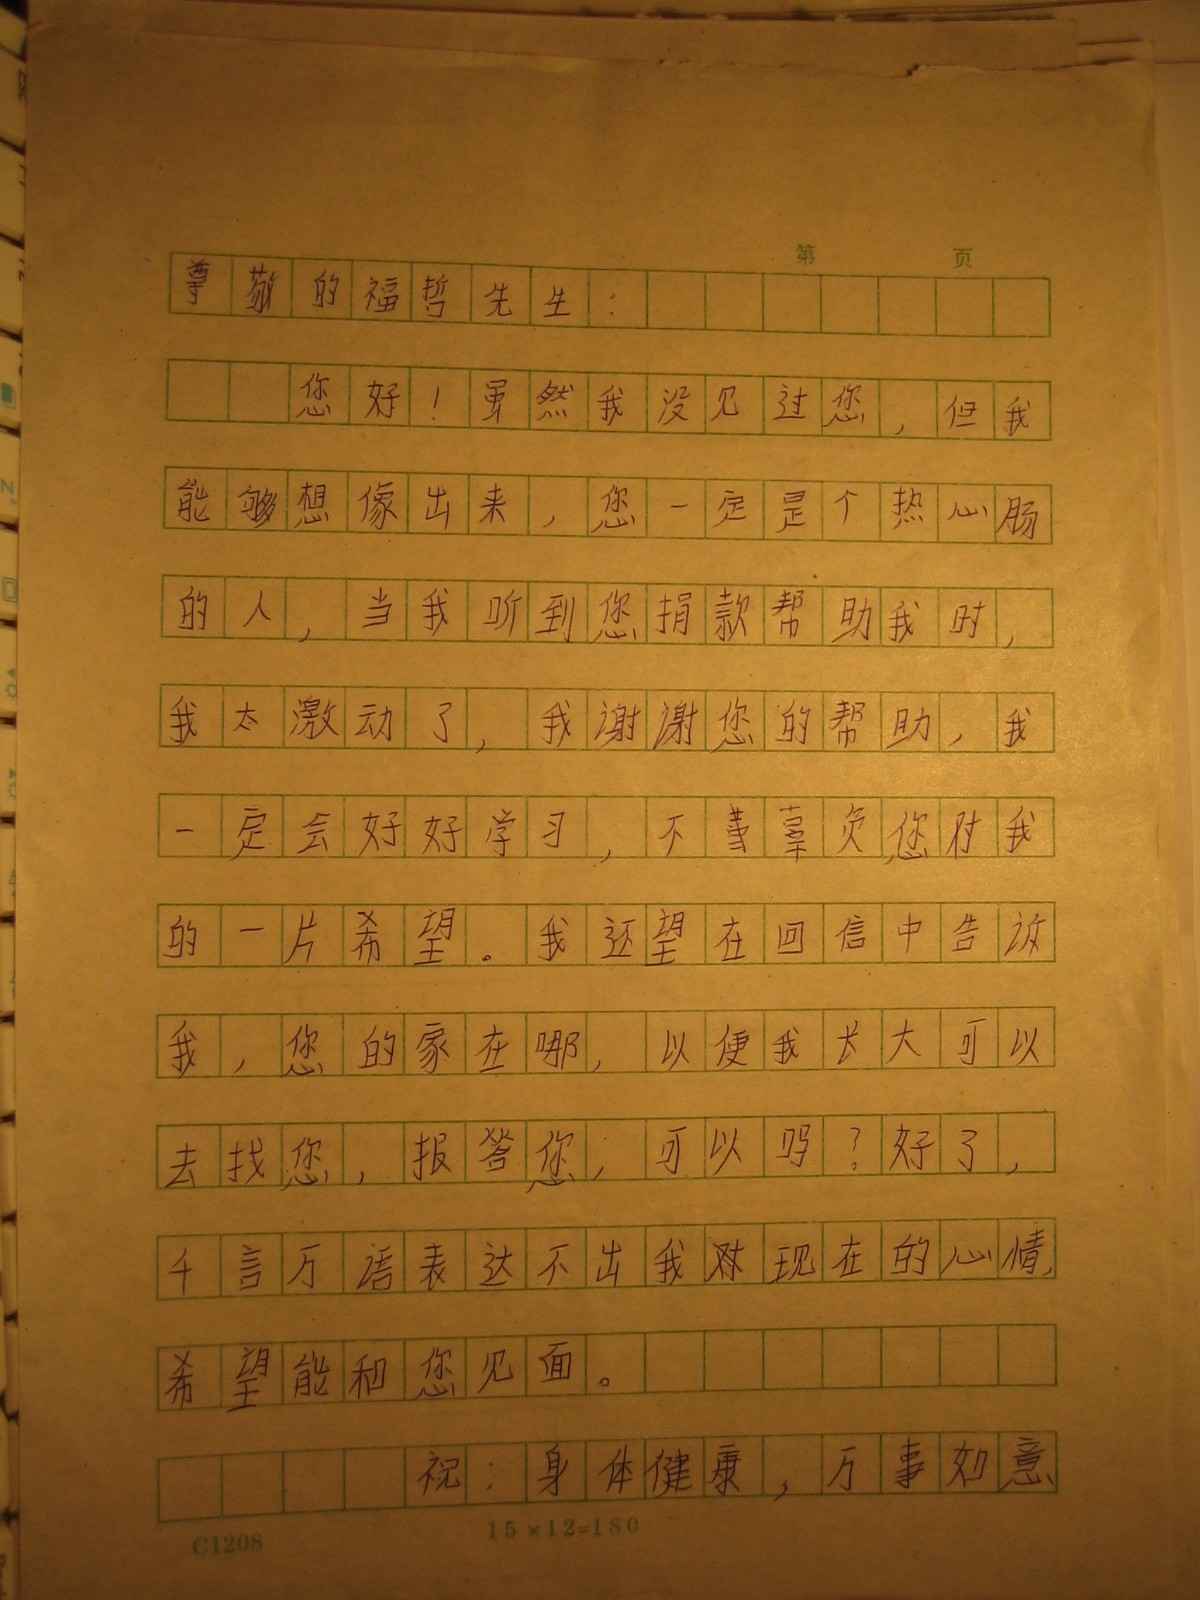 第 页
尊敬的福哲先生：
您好！虽然我没见过您，但我
能够想像出来，您一定是个热心肠
的人，当我听到您捐款帮助我时，
我太激动了，我谢谢您的帮助，我
一定会好好学习，不辜负您对我
的一片希望。我还望在回信中告诉
我，您的家在哪，以便我长大可以
去找您，报答您，可以吗？好了，
千言万语表达不出我对现在的心情，
希望能和您见面。
祝：身体健康，万事如意
C1208 15×12=180